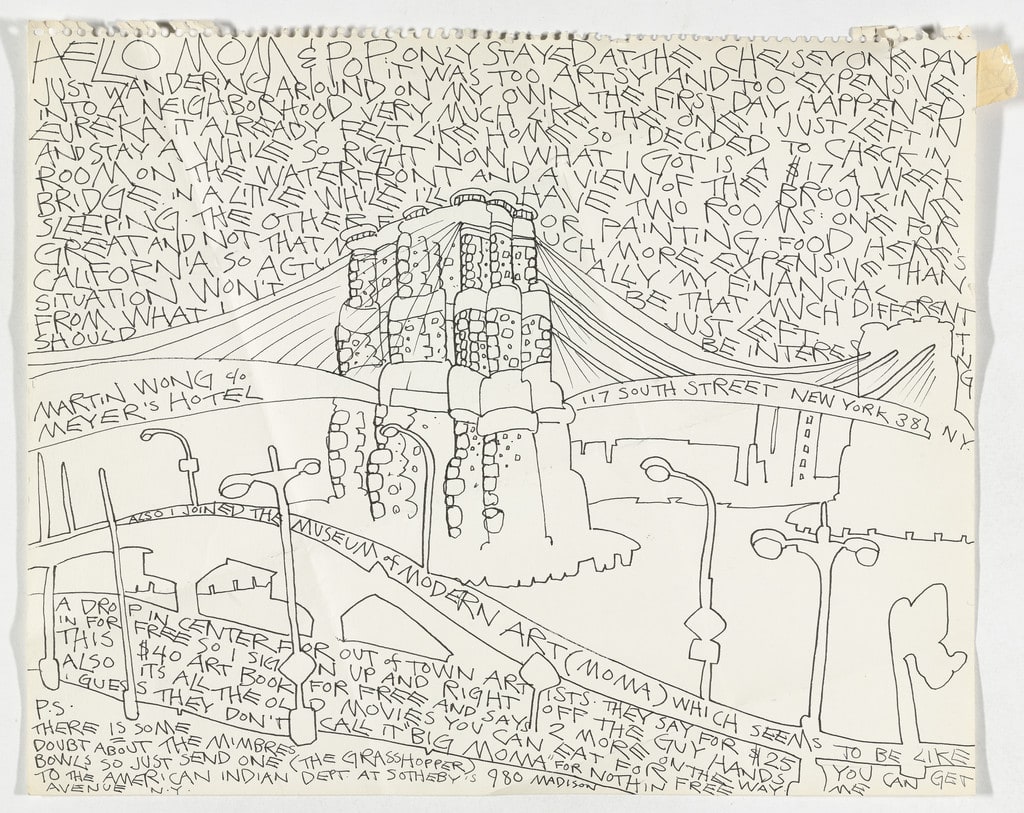 HELLO MOM & POP ONLY STAYED AT THE CHELSEY ONE DAY
IT WAS TOO ARTSY AND TOO EXPENSIVE
JUST WANDERING AROUND ON MY OWN THE FIRST DAY HAPPENED
INTO A NEIGHBORHOOD VERY MUCH LIKE THE ONE I JUST LEFT IN
EUREKA IT ALREADY FELT LIKE HOME SO I DECIDED TO CHECK IN
AND STAY A WHILE SO RIGHT NOW WHAT I GOT IS A $17 A WEEK
ROOM ON THE WATERFRONT AND A VIEW OF THE BROOKLYN
BRIDGE IN A LITLE WHILE I'LL HAVE TWO ROOMS ONE FOR
SLEEPING THE OTHER FOR PAINTING. FOOD HERE IS
GREAT AND NOT THAT MUCH MORE EXPENSIVE THAN
CALIFORNIA SO ACTUALLY MY FINANCIAL
SITUATION WON'T BE THAT MUCH DIFFERENT
FROM WHAT I JUST LEFT IT
SHOULD BE INTERESTING
MARTIN WONG c/o
MEYER'S HOTEL
117 SOUTH STREET NEW YORK 38, N.Y.
ALSO I JOINED THE MUSEUM of MODERN ART (MOMA) WHICH SEEMS TO BE LIKE
A DROP IN CENTER FOR OUT of TOWN ARTISTS THEY SAY FOR $25 YOU CAN GET
IN FOR FREE SO I SIGN UP AND RIGHT OFF THE GUY HANDS ME
THIS $40 ART BOOK FOR FREE AND SAYS 2 MORE ON THE WAY
ALSO ITS ALL THE OLD MOVIES YOU CAN EAT FOR FREE
I GUESS THEY DON'T CALL IT "BIG MOMA" FOR NOTHIN
P.S.
THERE IS SOME
DOUBT ABOUT THE MIMBRES
BOWLS SO JUST SEND ONE (THE GRASSHOPPER)
TO THE AMERICAN INDIAN DEPT AT SOTHEBY'S 980 MADISON
AVENUE N.Y.